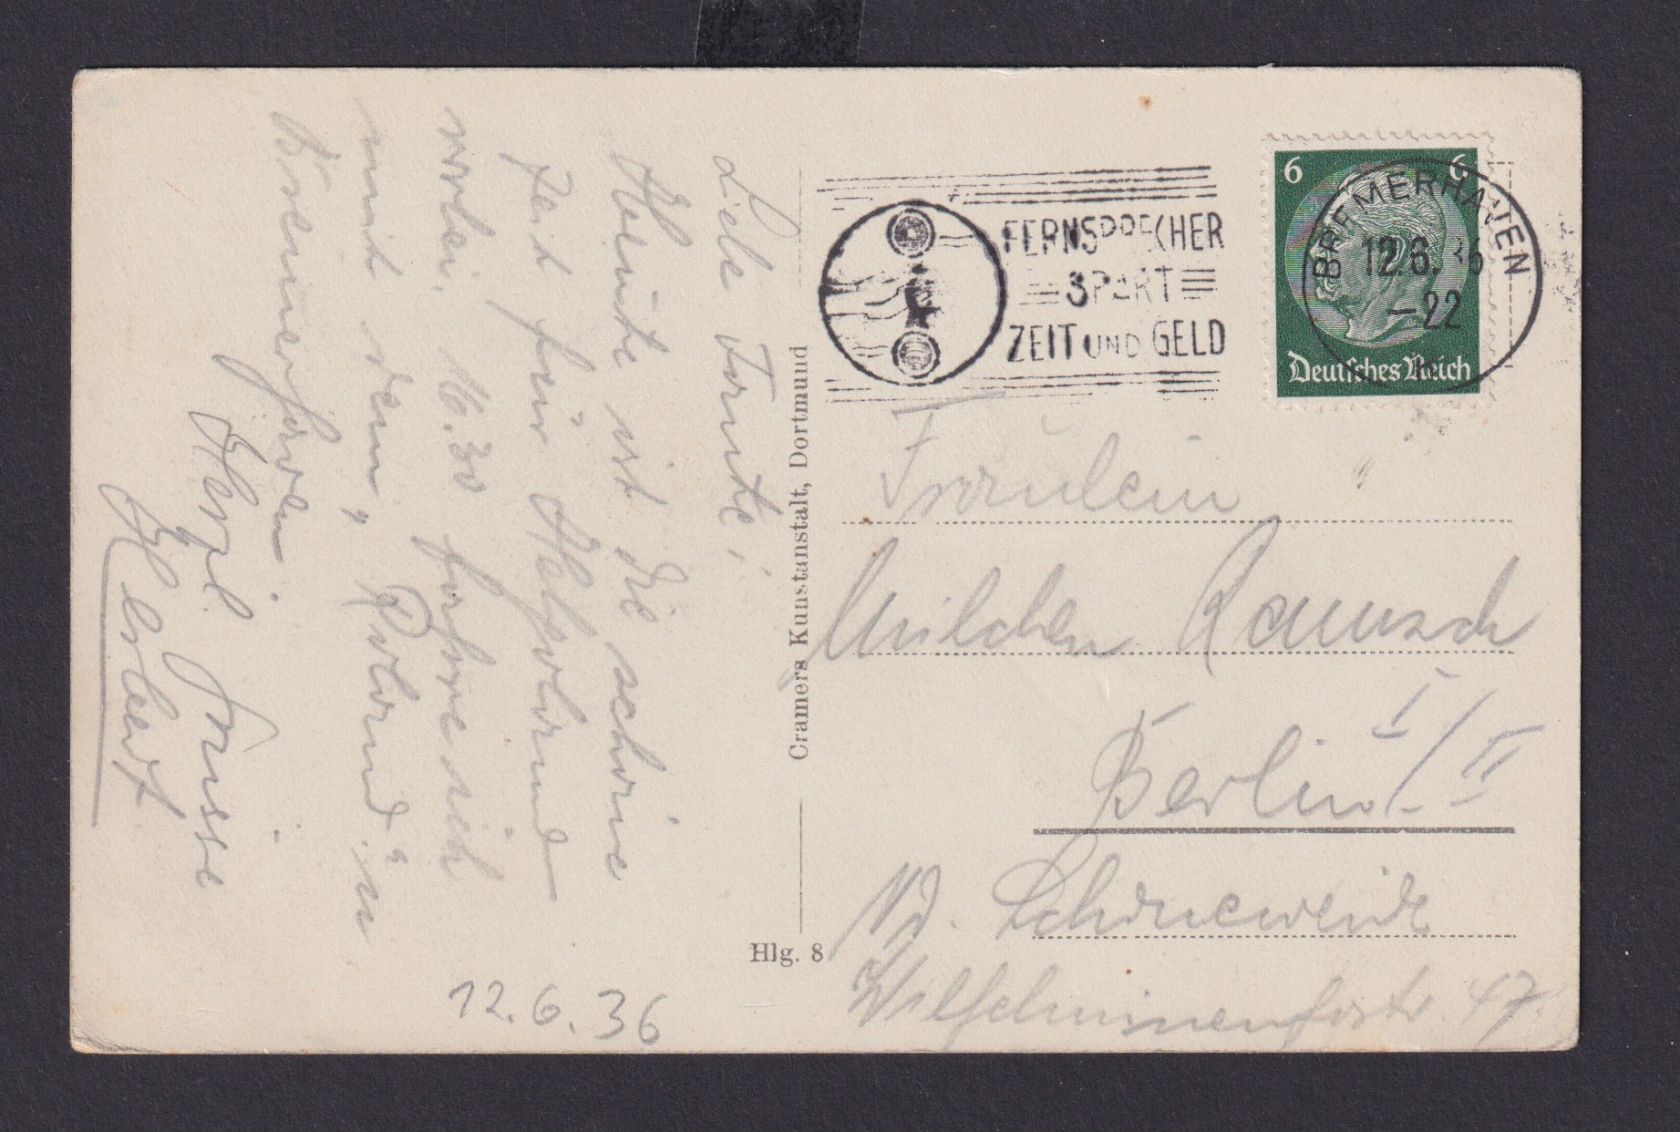 Liebe Tante!
Heute ist die schöne
Zeit für Helgoland
vorbei. 16.30 fahre ich
mit dem „Roland“ in
Bremerhaven.
Herzl. Grüsse
Herbert
12.6.36
Cramers Kunstanstalt, Dortmund
Hlg. 8
FERNSPRECHER
SPART
ZEIT UND GELD
6 6
Deutsches Reich
BREMERHAVEN
12.6.36
–22
Fräulein
Milchen Rauusch
Berlin I/II
Nd. Schöneweide
Wilhelminenhofstr. 47.